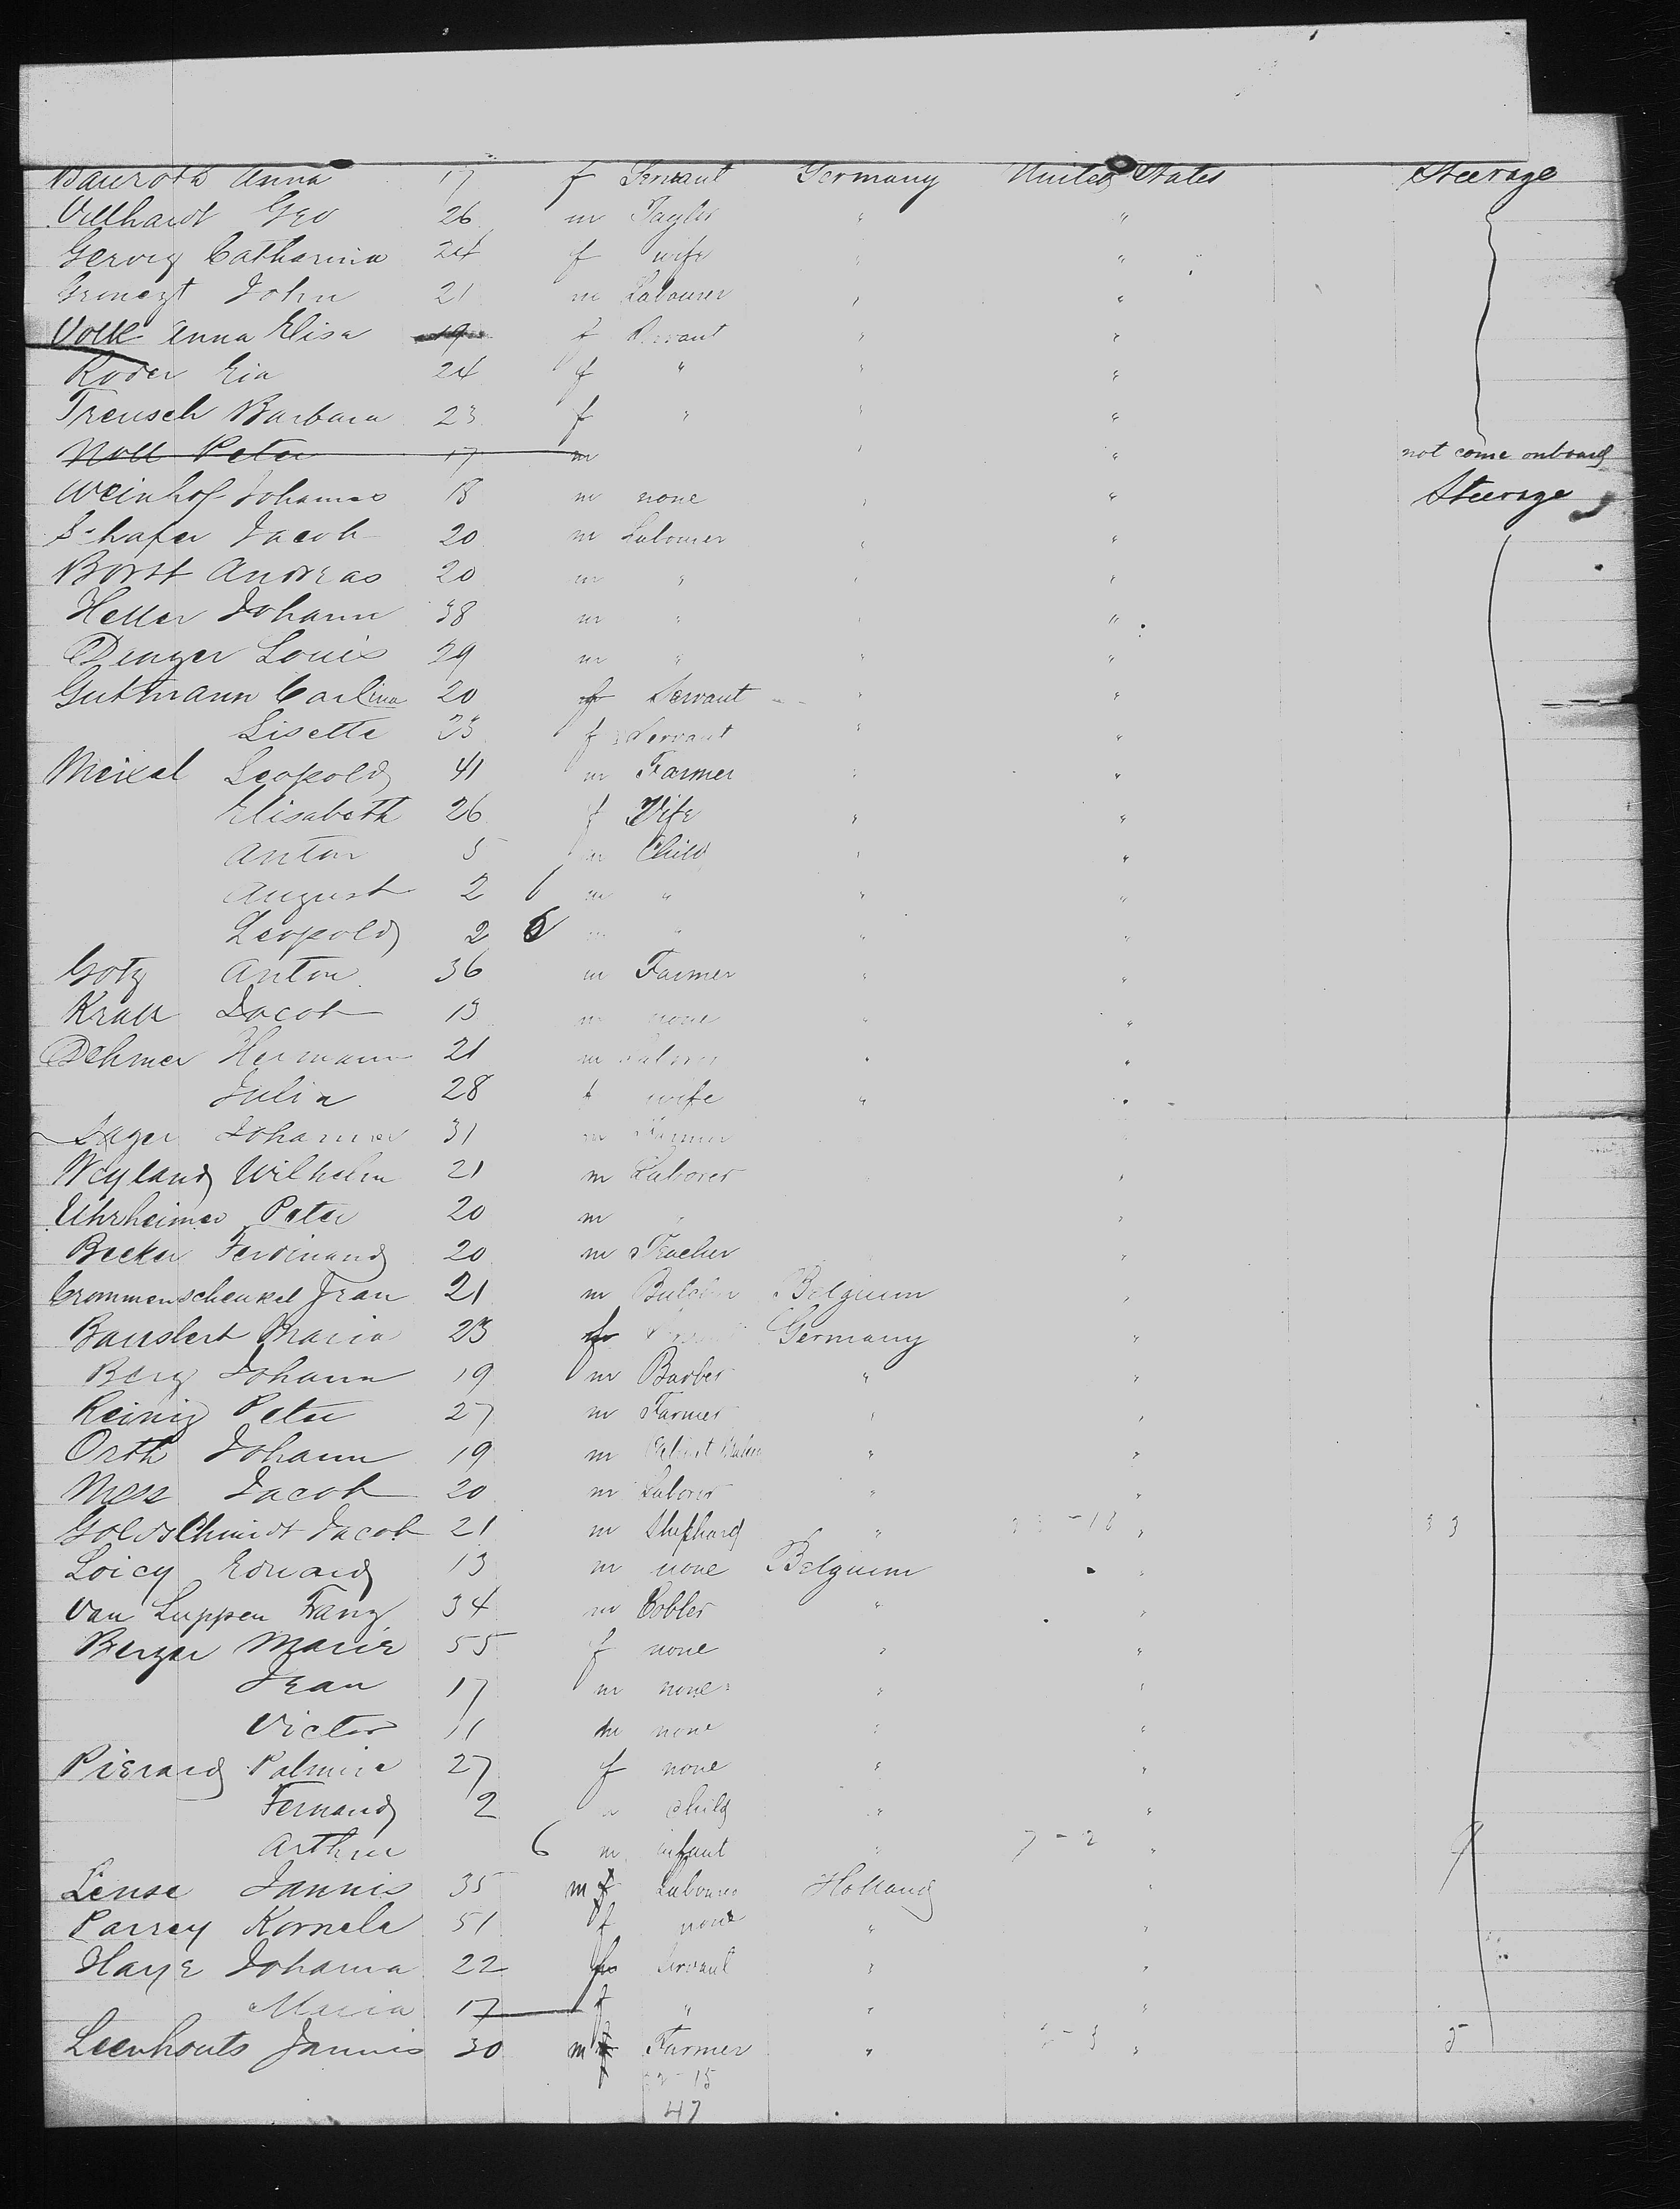 Bauroth Anna 17 f Servant Germany United States Steerage
Villhardt Geo 26 m Taylor " "
Gervig Catharina 24 f wife " "
John 21 m Labourer " "
Volk Anna Elisa 19 f Servant " "
Roder Eva 24 f " " "
Treusch Barbara 23 f " " "
Noll Peter 17 m " " not come onboard
Weinhof Johannes 18 m none " " Steerage
Schafer Jacob 20 m Labourer " "
Borst Andreas 20 m " " "
Heller Johann 38 m " " "
Denger Louis 29 m " " "
Gutmann Carlina 20 f Servant " "
Lisette 23 f Servant " "
Meixel Leopold 41 m Farmer " "
Elisabeth 26 f Wife " "
Anton 5 m Child " "
August 2 6 m " " "
Leopold 2 6 m " " "
Gotz Anton 36 m Farmer " "
Krall Jacob 13 m none " "
Dehmer Hermann 21 m Laborer " "
Julia 28 f wife " "
Jager Johannes 31 m Farmer
Weyland Wilhelm 21 m Laborer "
Uhrheimer Peter 20 m " "
Becker Ferdinand 20 m Teacher "
Crommenschenkel Jean 21 m Butcher Belgium "
Bauslert Maria 23 f Germany "
Berg Johann 19 m Barber " "
Reinig Peter 27 m Farmer " "
Orth Johann 19 m Cabinet Maker " "
Mess Jacob 20 m Laborer " "
Goldschmidt Jacob 21 m Shephard " "
Loicy Edward 13 m none Belgium "
Van Luppen Franz 34 m Cobler " "
Berger Marie 55 f none " "
Jean 17 m none " "
Victor 11 m none " "
Pierard Palmire 27 f none " "
Fernand 2 child " "
Arthur 6 m infant " 7-2 "
Lense Jannis 35 m Labourer Holland "
Parrey Kornele 51 f none " "
Haye Johanna 22 f Servant " "
Maria 17 f " " "
Leenhouts Jannis 30 m Farmer " " 5
32-15
47